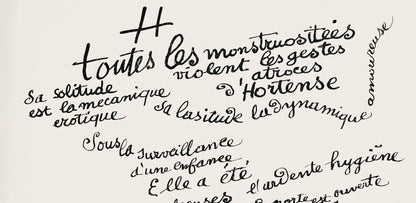 H
toutes les monstruositées
violent les gestes
atroces
d'Hortense
Sa solitude
est la mecanique
erotique
Sa lasitude la dynamique
amoureuse
Sous la surveillance
d'une enfance
Elle a été,
l'ardente hygiène
porte est ouverte